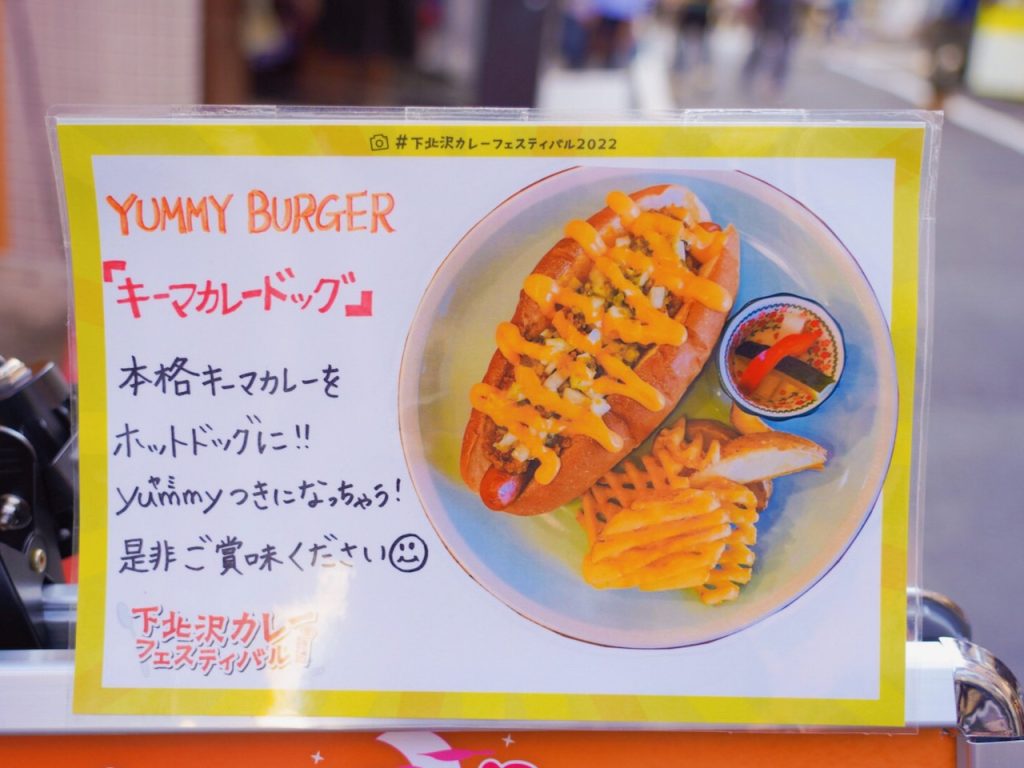 #下北沢カレーフェスティバル2022
YUMMY BURGER
「キーマカレードッグ」
本格キーマカレーを
ホットドッグに!!
yummyつきになっちゃう!
ヤミー
是非ご賞味ください
下北沢カレー
フェスティバル